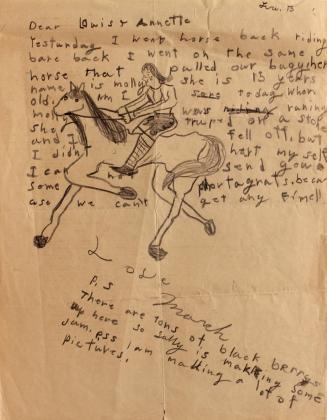 Dear Louis & Annette
Yesturday I went horse back riding
bare back I went on the same
horse that pulled our bugy her
name is molly she is 13 years
old. am I sore today when
moll was runing
she truped on a ston
and I fell off. but
I didn't hert my self
I can not send you a
some photagrats. becau
ase we can't get any fimell
Love
March
P.S
There are tons of black berrys
up here so sally is making some
jam. P.S.S I am making a lot of
pictures.